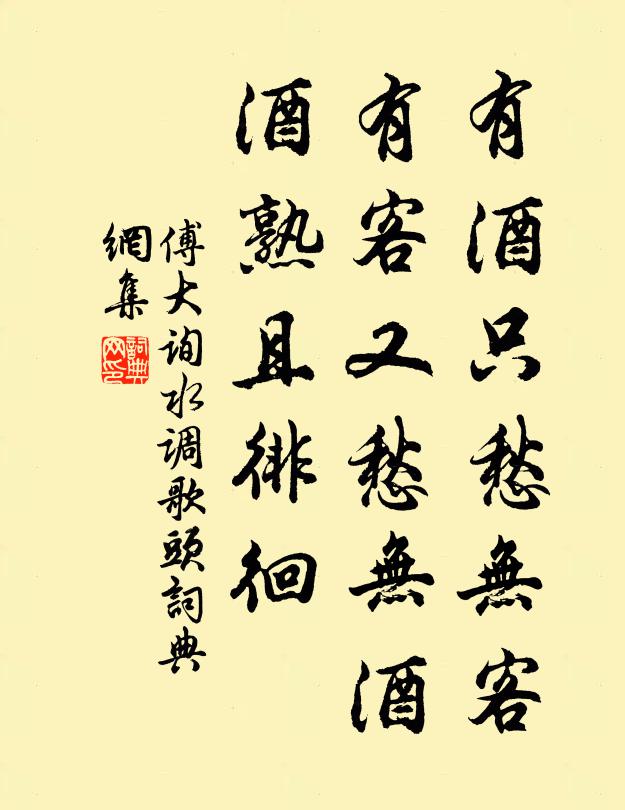 有酒只愁無客
有客又愁無酒
酒熟且徘徊
傅大询水调歌頭詞典
網集
詞典网印